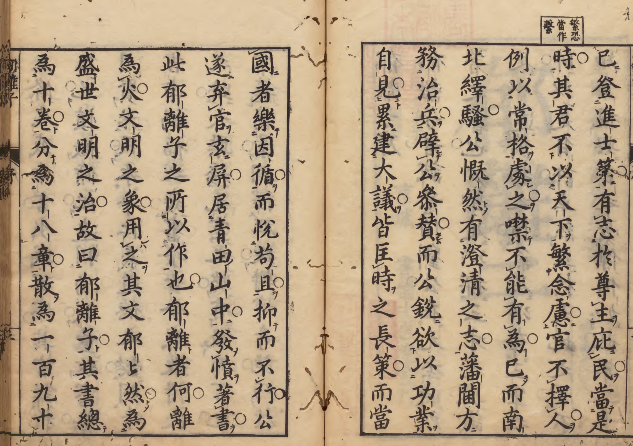 繁恐
當作
繋
已登進士第有志於尊主庇民當是
時其君不以天下繁念慮官不擇人
例以常格處之噤不能有為已而南
北繹騷公慨然有澄清之志藩閫方
務治兵辟公參贊而公銳欲以功業
自見累建大議皆匡時之長策而當
國者樂因循而悅苟且抑而不行公
遂弃官玄屏居青田山中發憤著書
此郁離子之所以作也郁離者何離
為火文明之象用之其文郁〻然為
盛世文明之治故曰郁離子其書總
為十卷分為十八章散為一百九十